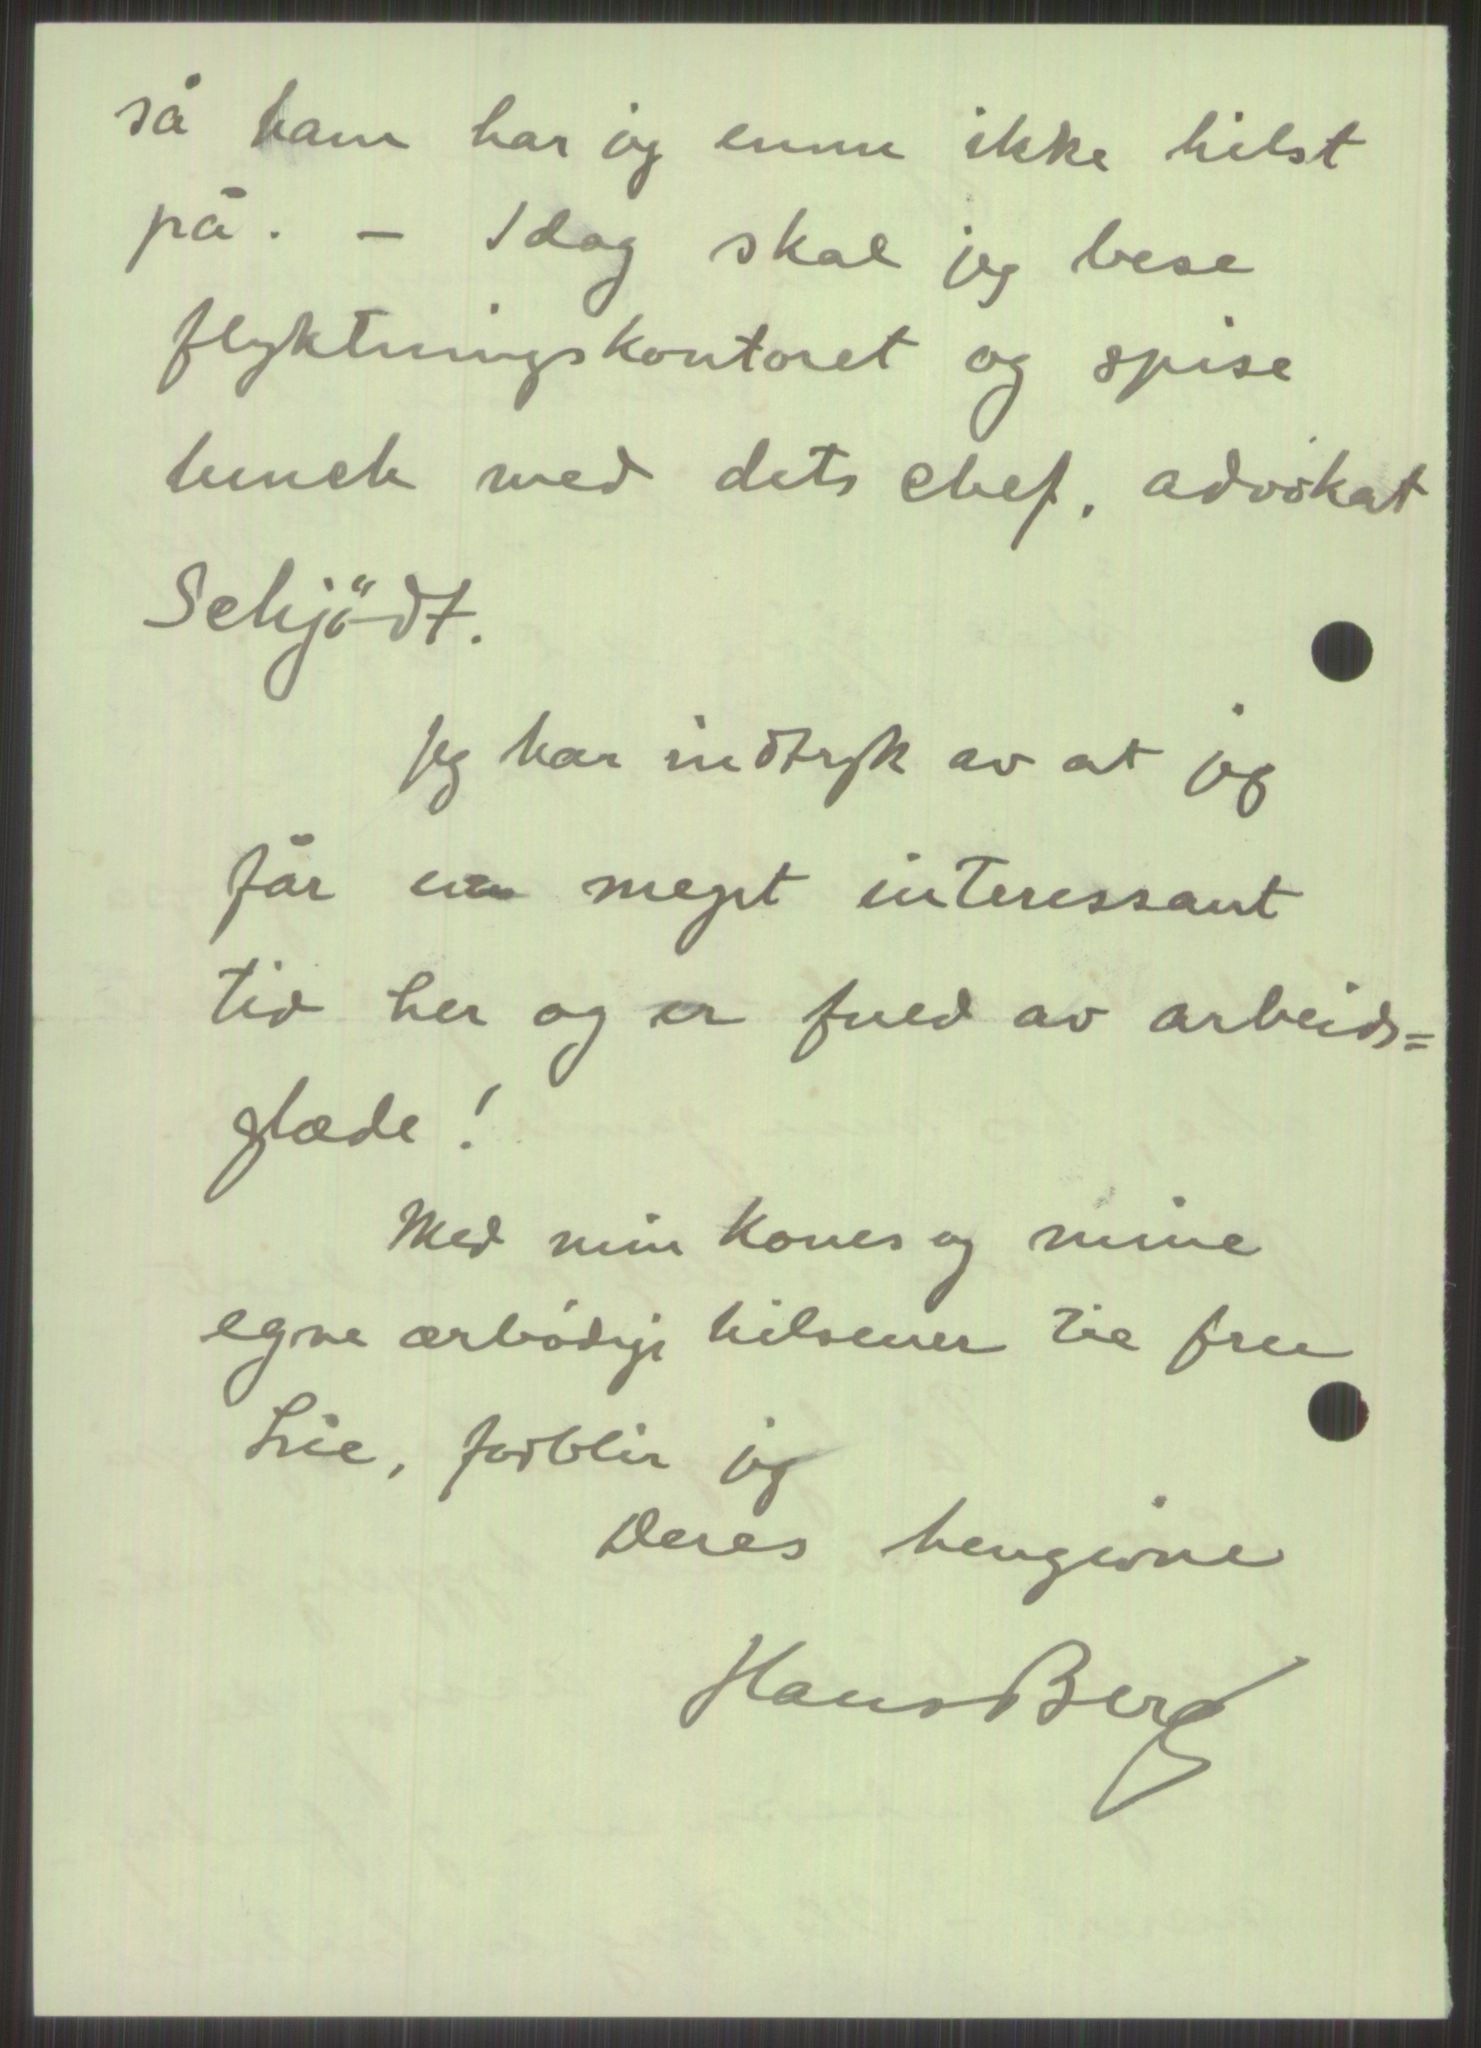 så ham har jeg ennu ikke hilst
på. - Idag skal jeg bese
flyktningskontoret og spise
lunch med dets chef, advokat
Schjödt.
Jeg har indtryk av at jeg
får en meget interessant
tid her og er fuld av arbeids=
glæde!
Med min kones og mine
egne ærbödige hilsener til frue
Lie, forblir jeg
Deres hengivne
Hans Berg